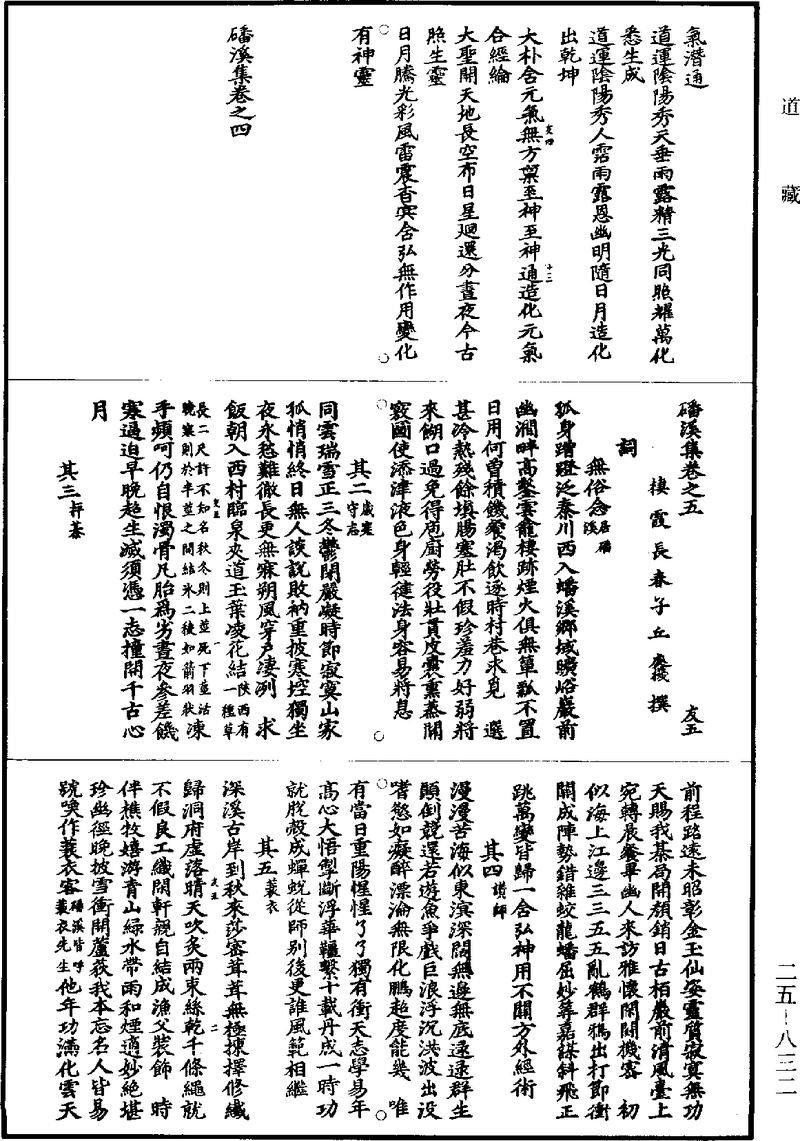 道藏
氣潛通
道運陰陽秀天垂雨露精三光同照耀萬化
悉生成
道運陰陽秀人霑雨露恩幽明隨日月造化
出乾坤
大朴含元氣無方稟至神至神通造化元氣
合經綸
大聖開天地長空布日星廻還分晝夜今古
照生靈
日月騰光彩風雷震杳冥含弘無作用變化
有神靈
磻溪集卷之四
磻溪集卷之五
友五
棲霞長春子丘處機撰
詞
無俗念居磻溪
孤身蹭蹬泛秦川西入磻溪鄉域曠峪巖前
幽澗畔高鑿雲龕棲跡煙火俱無簞瓢不置
日用何曾積饑餐渴飲逐時村巷求覓 選
甚冷熱殘餘填腸塞肚不假珍羞力好弱將
來餬口過免得庖廚勞役壯貫皮囊熏蒸關
竅圖使添津液色身輕健法身容易將息
其二歲寒守志
同雲瑞雪正三冬鬱閉嚴凝時節寂寞山家
孤悄悄終日無人談説敗衲重披寒埪獨坐
夜永愁難徹長更無寐朔風穿戶凄冽 求
飯朝入西村臨泉夾道玉葉凌花結陝西有一種草
長二尺許不知名秋冬則上莖死下莖活
晚寒則於半莖之間結氷二稜如箭羽狀凍
手頻呵仍自恨濁骨凡胎爲劣晝夜參差饑
寒逼迫早晚超生滅須憑一志撞開千古心
月
其三枰棊
前程路遠未昭彰金玉仙姿靈質寂寞無功
天賜我棊局開顏銷日古栢巖前清風臺上
宛轉晨餐畢幽人來訪雅懷閑鬬機密 初
似海上江邊三三五五亂鶴群鵶出打節衝
關成陣勢錯雜蛟龍蟠屈妙筭嘉謀斜飛正
跳萬變皆歸一含弘神用不關方外經術
其四贈師
漫漫苦海似東溟深闊無邊無底逯逯群生
顛倒競還若遊魚爭戲巨浪浮沉洪波出沒
嗜慾如癡醉漂淪無限化鵬超度能幾 唯
有當日重陽惺惺了了獨有衝天志學易年
高心大悟掣斷浮華韁繫十載丹成一時功
就脫殼成蟬蛻從師別後更誰風範相繼
其五蓑衣
深溪古岸到秋來莎密茸茸無極揀擇修纖
歸洞府虛落晴天吹炙兩束絲乾千條繩就
不假良工織閑軒親自結成漁父裝飾 時
伴樵牧嬉游青山綠水帶雨和煙適妙絶堪
珍幽徑晚披雪衝開蘆荻我本忘名人皆易
號喚作蓑衣客磻溪皆呼蓑衣先生他年功滿化雲天
二五-八三二